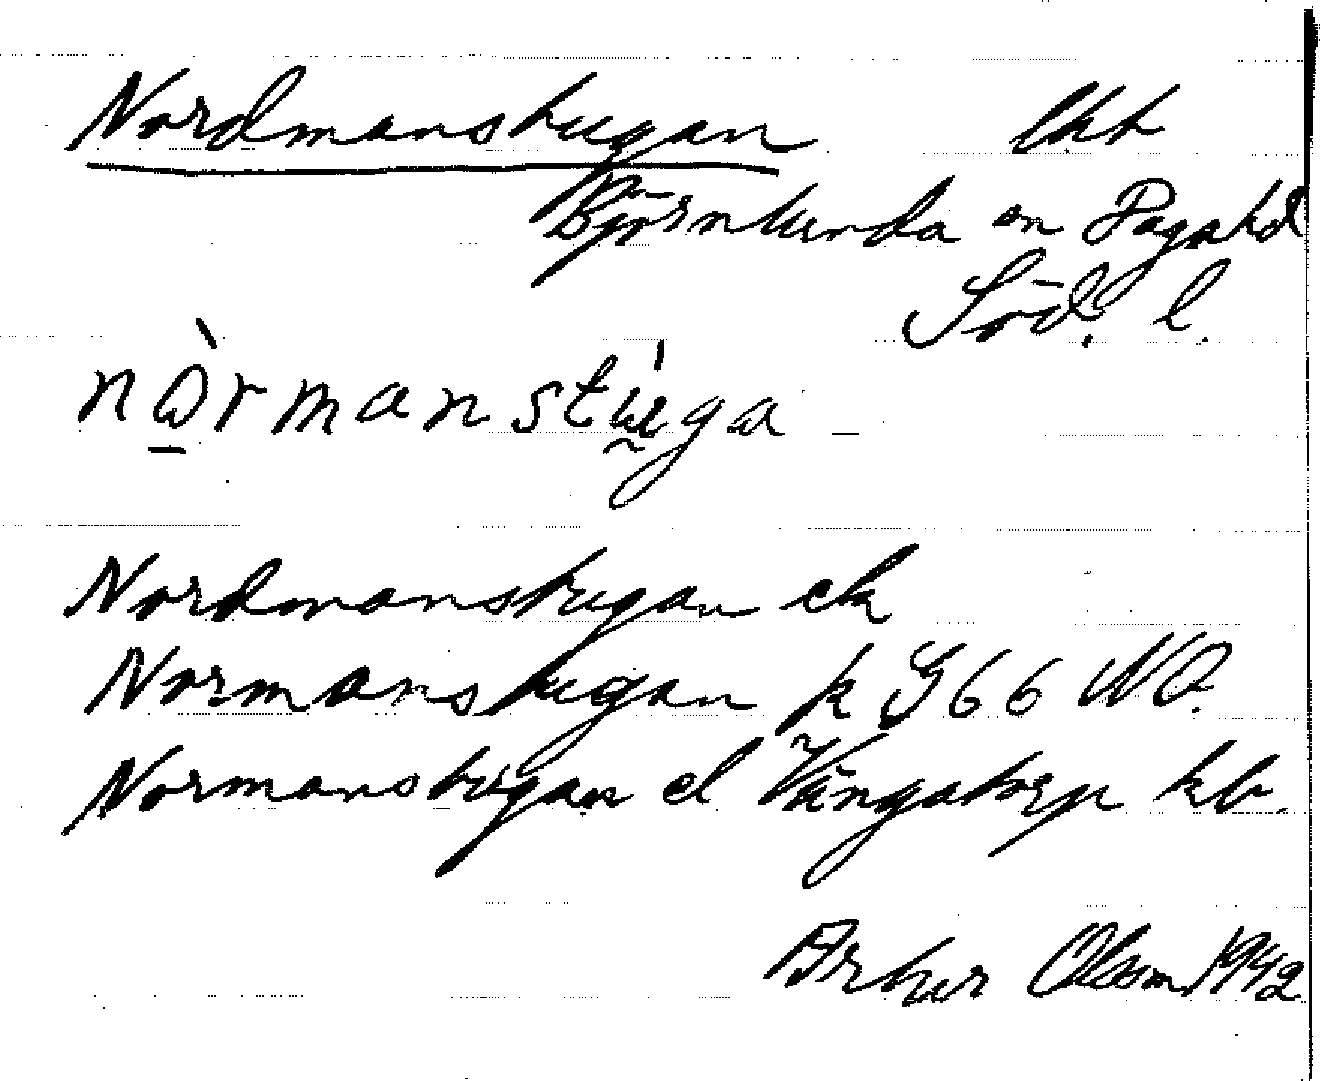 Nordmanstugan lht
Björnlunda sn Dagahd
Söd. l.
nòrmanstúga –
Nordmanstugan ek
Normanstugan k G66 NO.
Normanstugan el Vängatorp kb.
Artur Olsson 1942